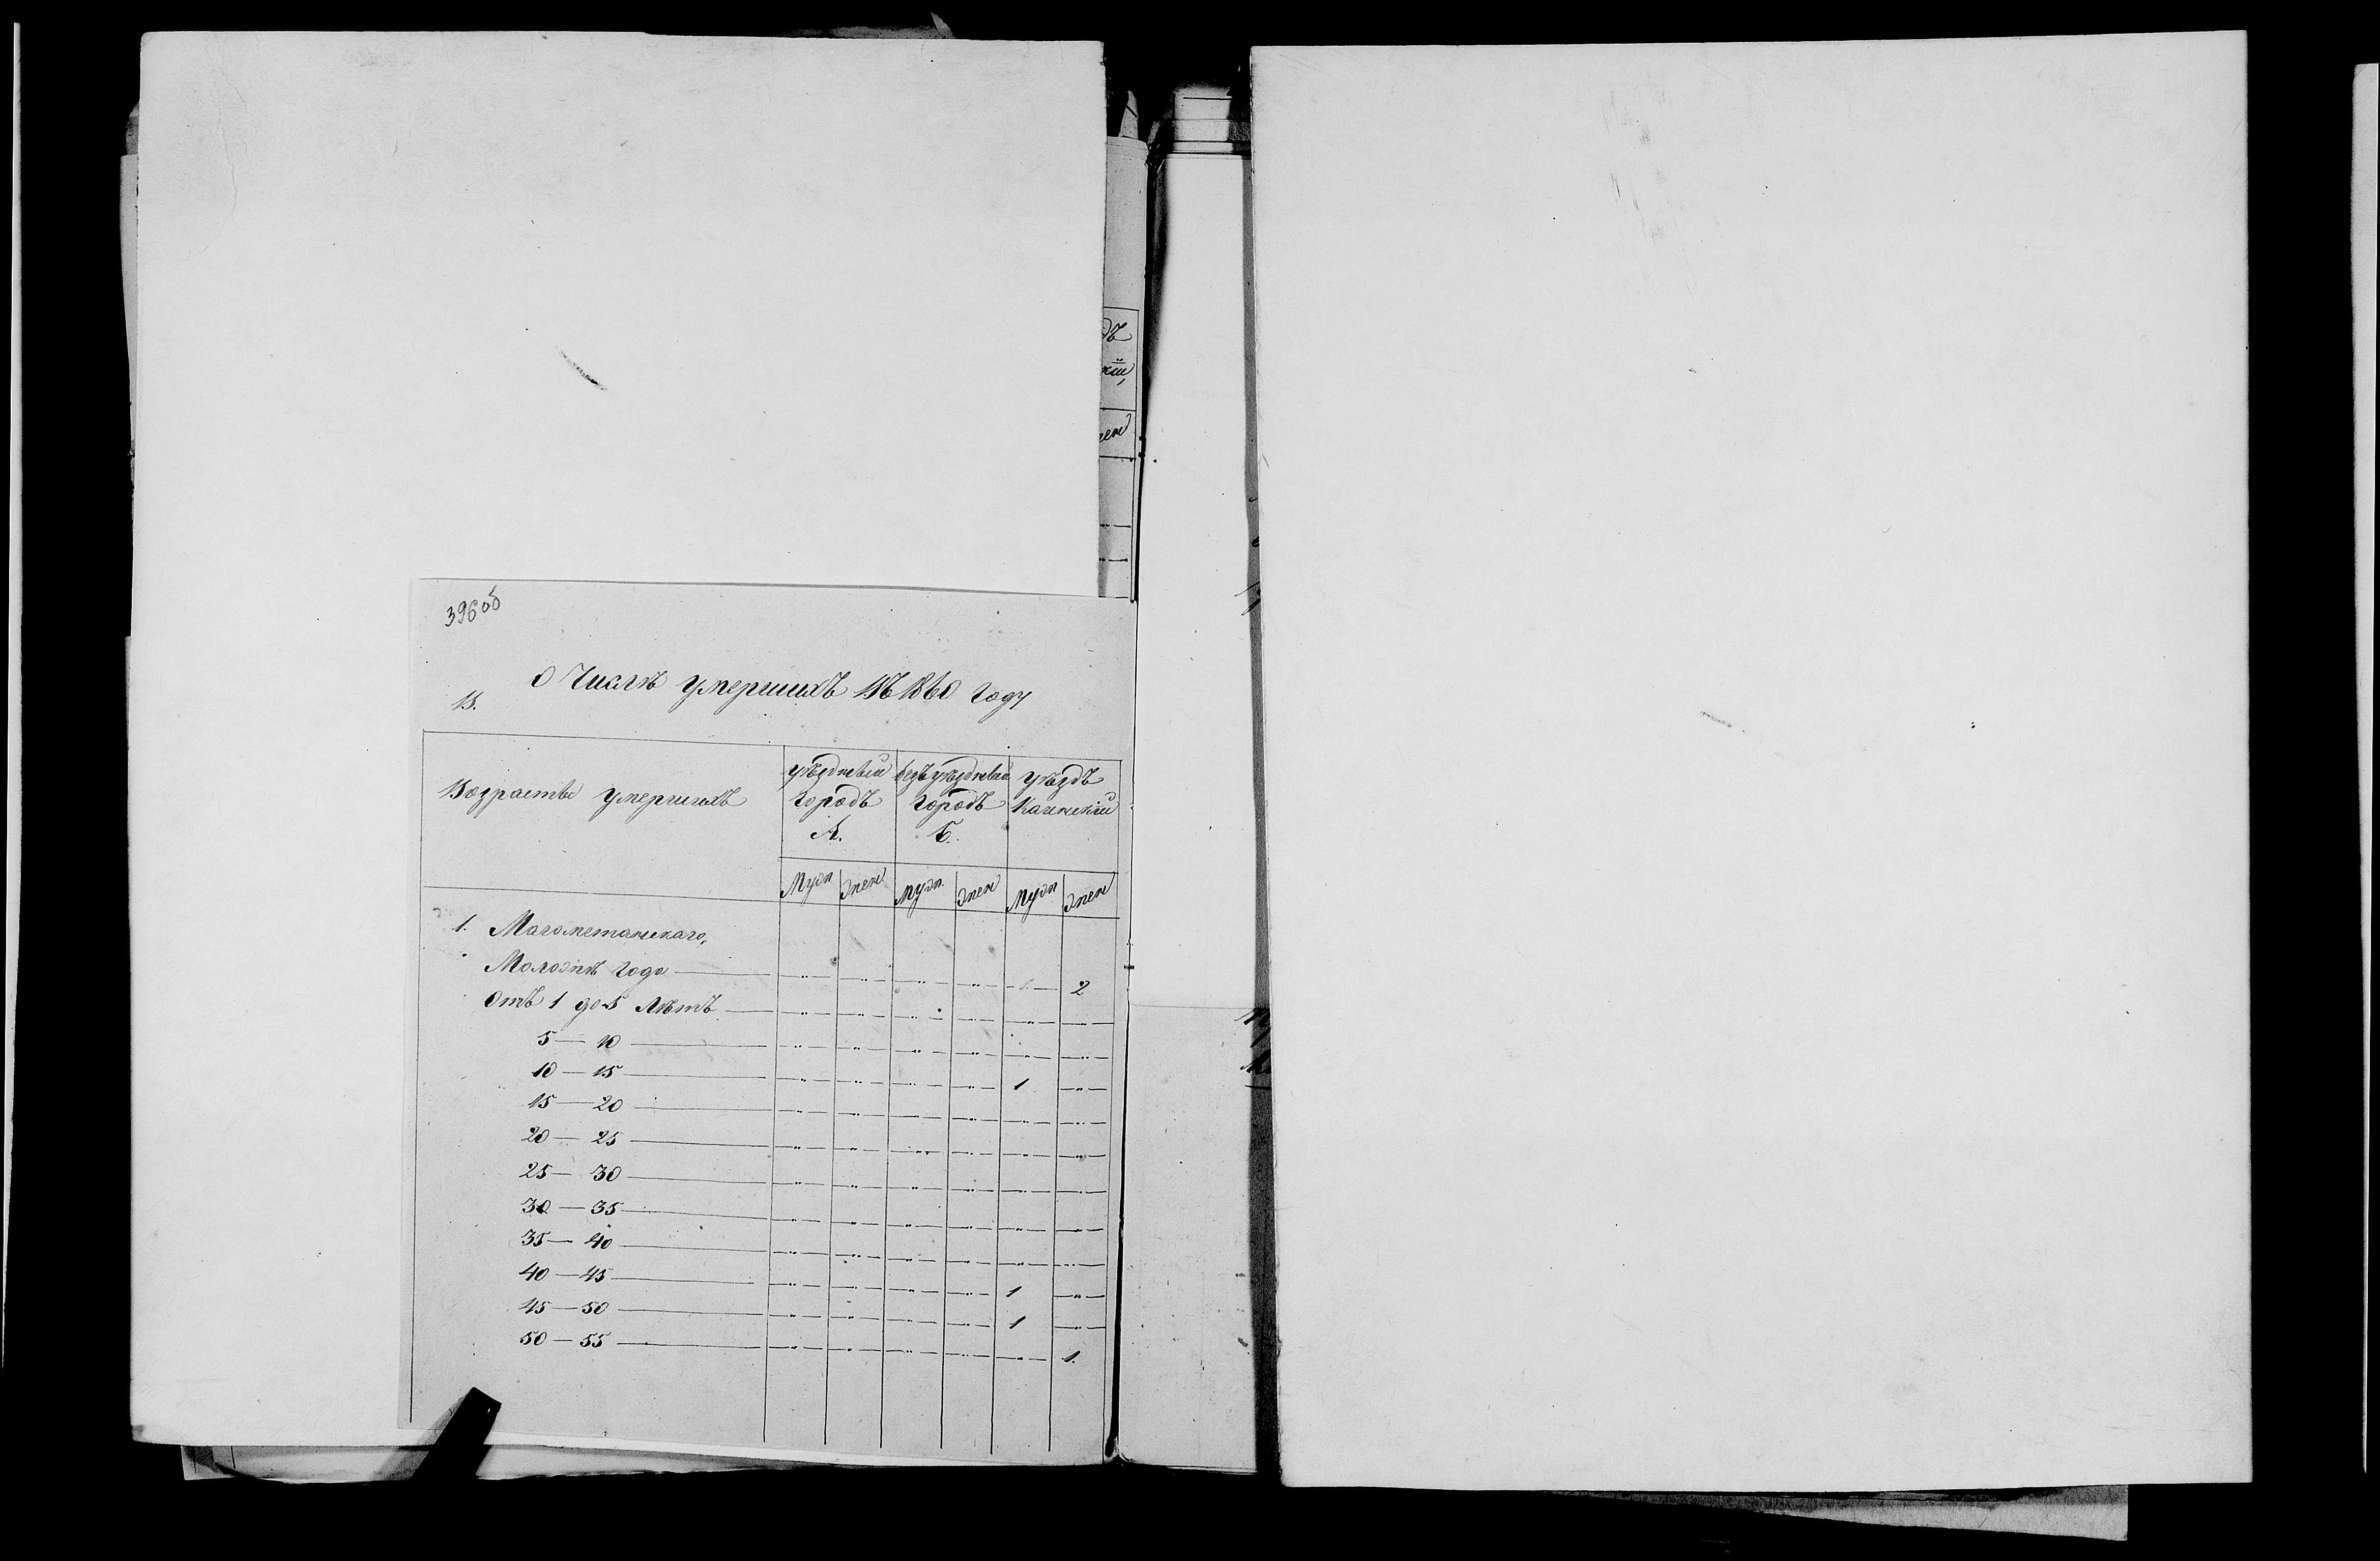 396об
О Числѣ умершихъ въ 1860 году
В.
Возрасты умершихъ
уѣздный городъ А.
безъуѣздный городъ Б.
уѣздъ Каинскій
Муж Жен Муж Жен Муж Жен
1. Магометанскаго,
Моложѣ года — „ — „ — „ — „ — 2
Отъ 1 до 5 Лѣтъ — „ — „ — „ — „ — „ — „
5 — 10 — „ — „ — „ — „ — „ — „
10 — 15 — „ — „ — „ — „ 1 — „
15 — 20 — „ — „ — „ — „ — „ — „
20 — 25 — „ — „ — „ — „ — „ — „
25 — 30 — „ — „ — „ — „ — „ — „
30 — 35 — „ — „ — „ — „ — „ — „
35 — 40 — „ — „ — „ — „ — „ — „
40 — 45 — „ — „ — „ — „ 1 — „
45 — 50 — „ — „ — „ — „ 1 — „
50 — 55 — „ — „ — „ — „ — „ 1.